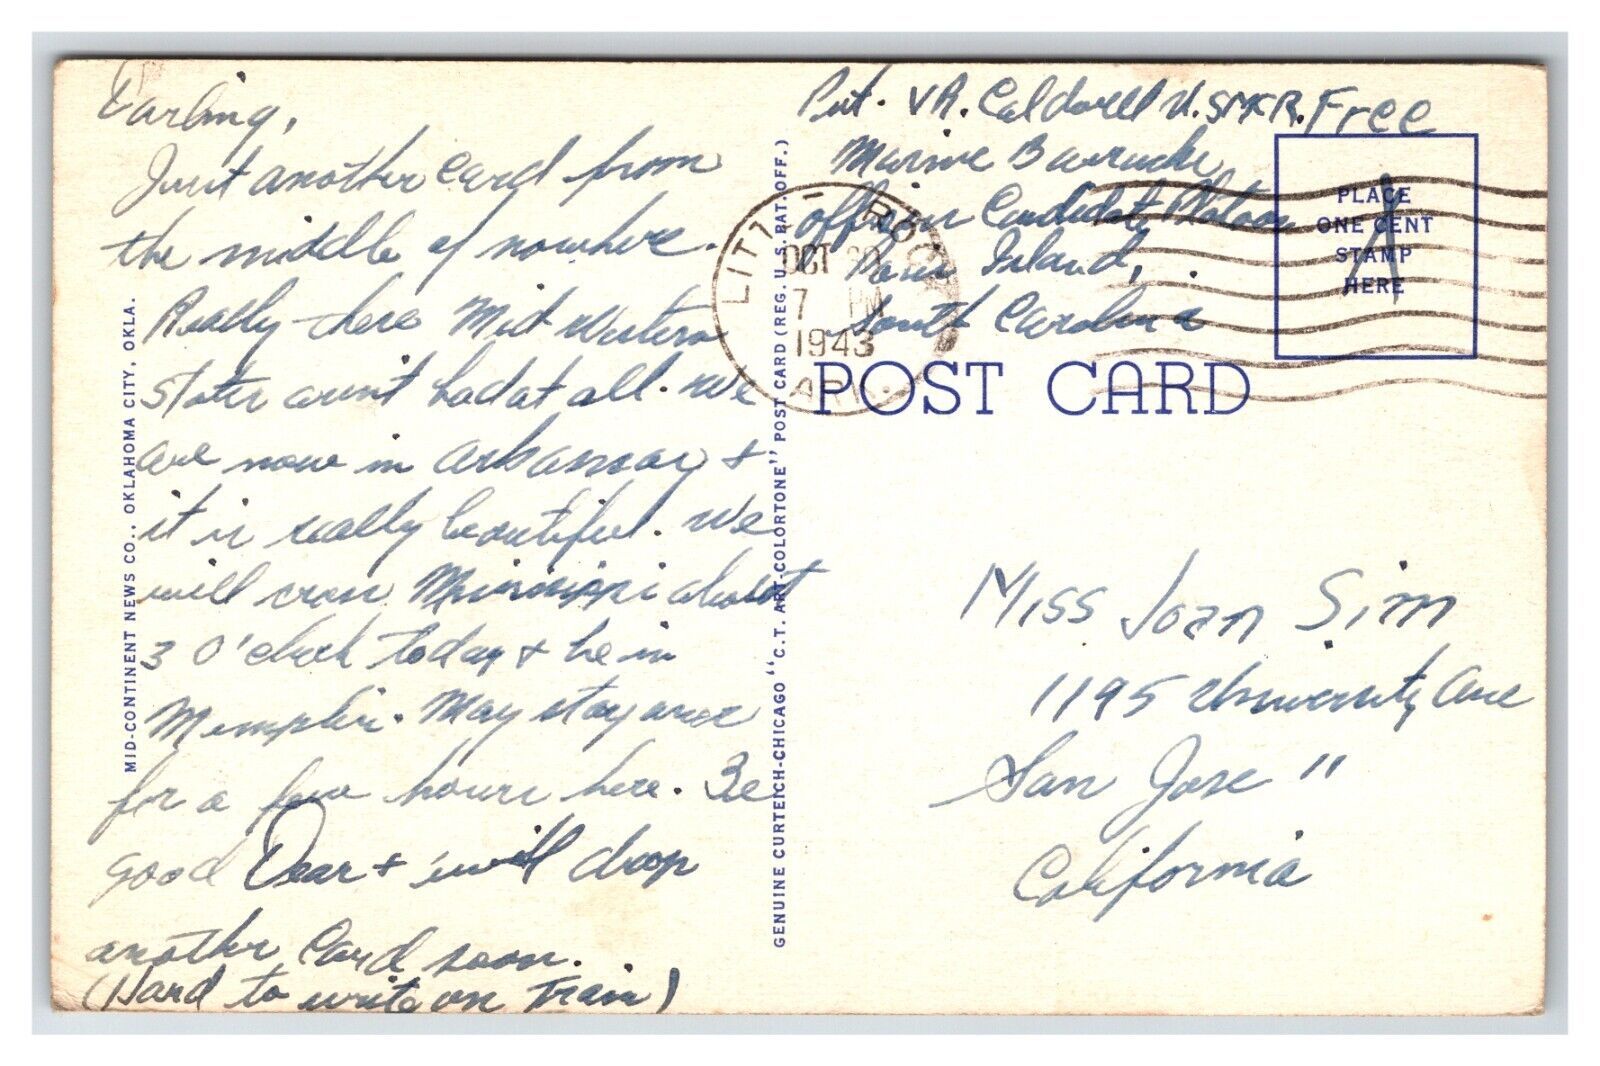 Darling,
Just another card from
the middle of nowhere.
Really these Mid Western
states aren't bad at all. We
are now in Arkansas &
it is really beautiful. We
will cross Mississippi about
3 O'clock today & be in
Memphis. May stay over
for a few hours here. Be
good Dear & will drop
another Card soon.
(Hard to write on Train)
MID-CONTINENT NEWS CO., OKLAHOMA CITY, OKLA.
GENUINE CURTEICH-CHICAGO "C.T. ART-COLORTONE" POST CARD (REG. U.S. PAT. OFF.)
Pvt. VA. Caldwell U.SMCR. Free
Marine Barracks
Officer Candidate Platoon
Island,
South Carolina
LITTLE ROCK
OCT 20
7 PM
1943
ARK.
PLACE
ONE CENT
STAMP
HERE
POST CARD
Miss Joan Sim
1195 University Ave
San Jose "
California